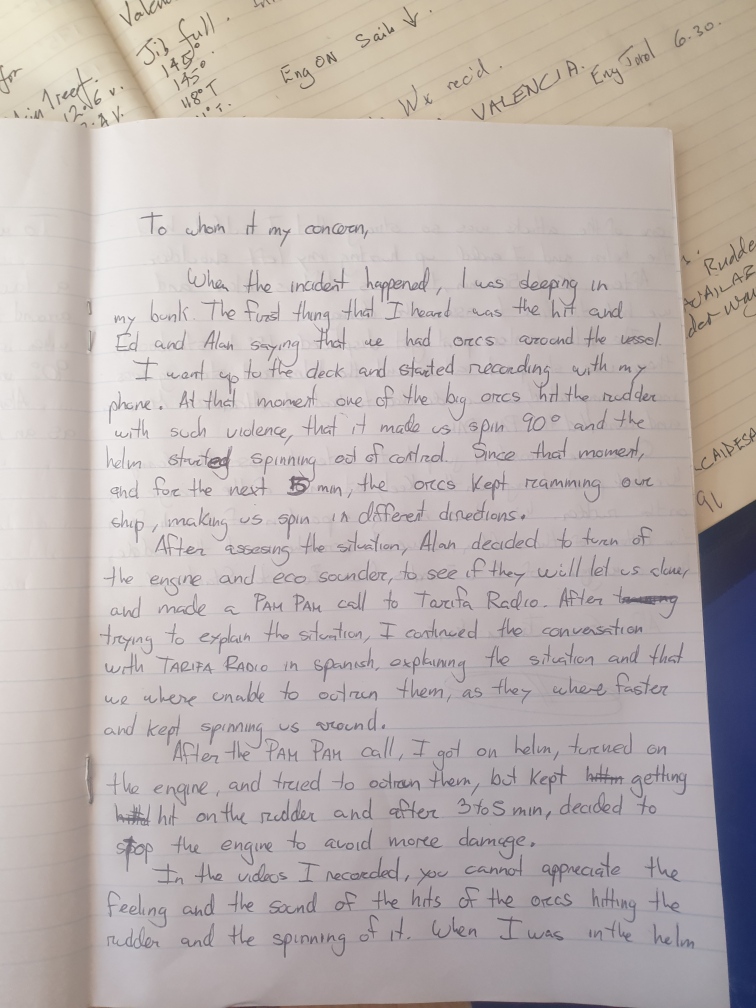 Jib full.
145°
145°
118°T
Eng ON Sails ↓.
Wx rec'd.
VALENCIA.
Eng Total 6.30.
12.6 v.
To whom it my concern,
When the incident happened, I was sleeping in
my bunk. The first thing that I heard was the hit and
Ed and Alan saying that we had orcs around the vessel.
I went up to the deck and started recording with my
phone. At that moment one of the big orcs hit the rudder
with such violence, that it made us spin 90° and the
helm started spinning out of control. Since that moment,
and for the next 5 min, the orcs kept ramming our
ship, making us spin in different directions.
After assesing the situation, Alan decided to turn of
the engine and eco sounder, to see if they will let us alone,
and made a PAM PAM call to Tarifa Radio. After
trying to explain the situation, I continued the conversation
with TARIFA RADIO in spanish, explaining the situation and that
we where unable to outrun them, as they where faster
and kept spinning us around.
After the PAM PAM call, I got on helm, turned on
the engine, and tried to outrun them, but kept getting
hit on the rudder and after 3 to 5 min, decided to
stop the engine to avoid more damage.
In the videos I recorded, you cannot appreciate the
feeling and the sound of the hits of the orcas hitting the
rudder and the spinning of it. When I was in the helm
Rudde
CAIDESA
91